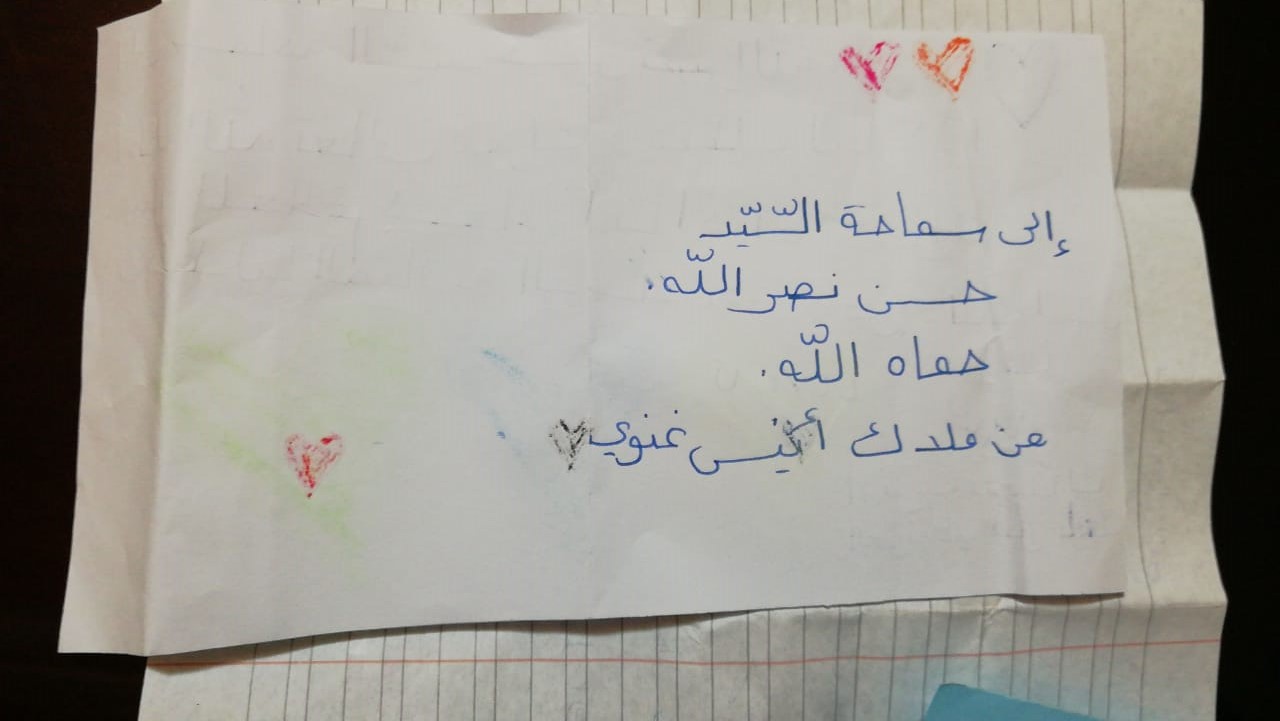 إلى سماحة السّيّد
حسن نصر اللّه.
حماه اللّه.
من ملدك أنيس غنوي